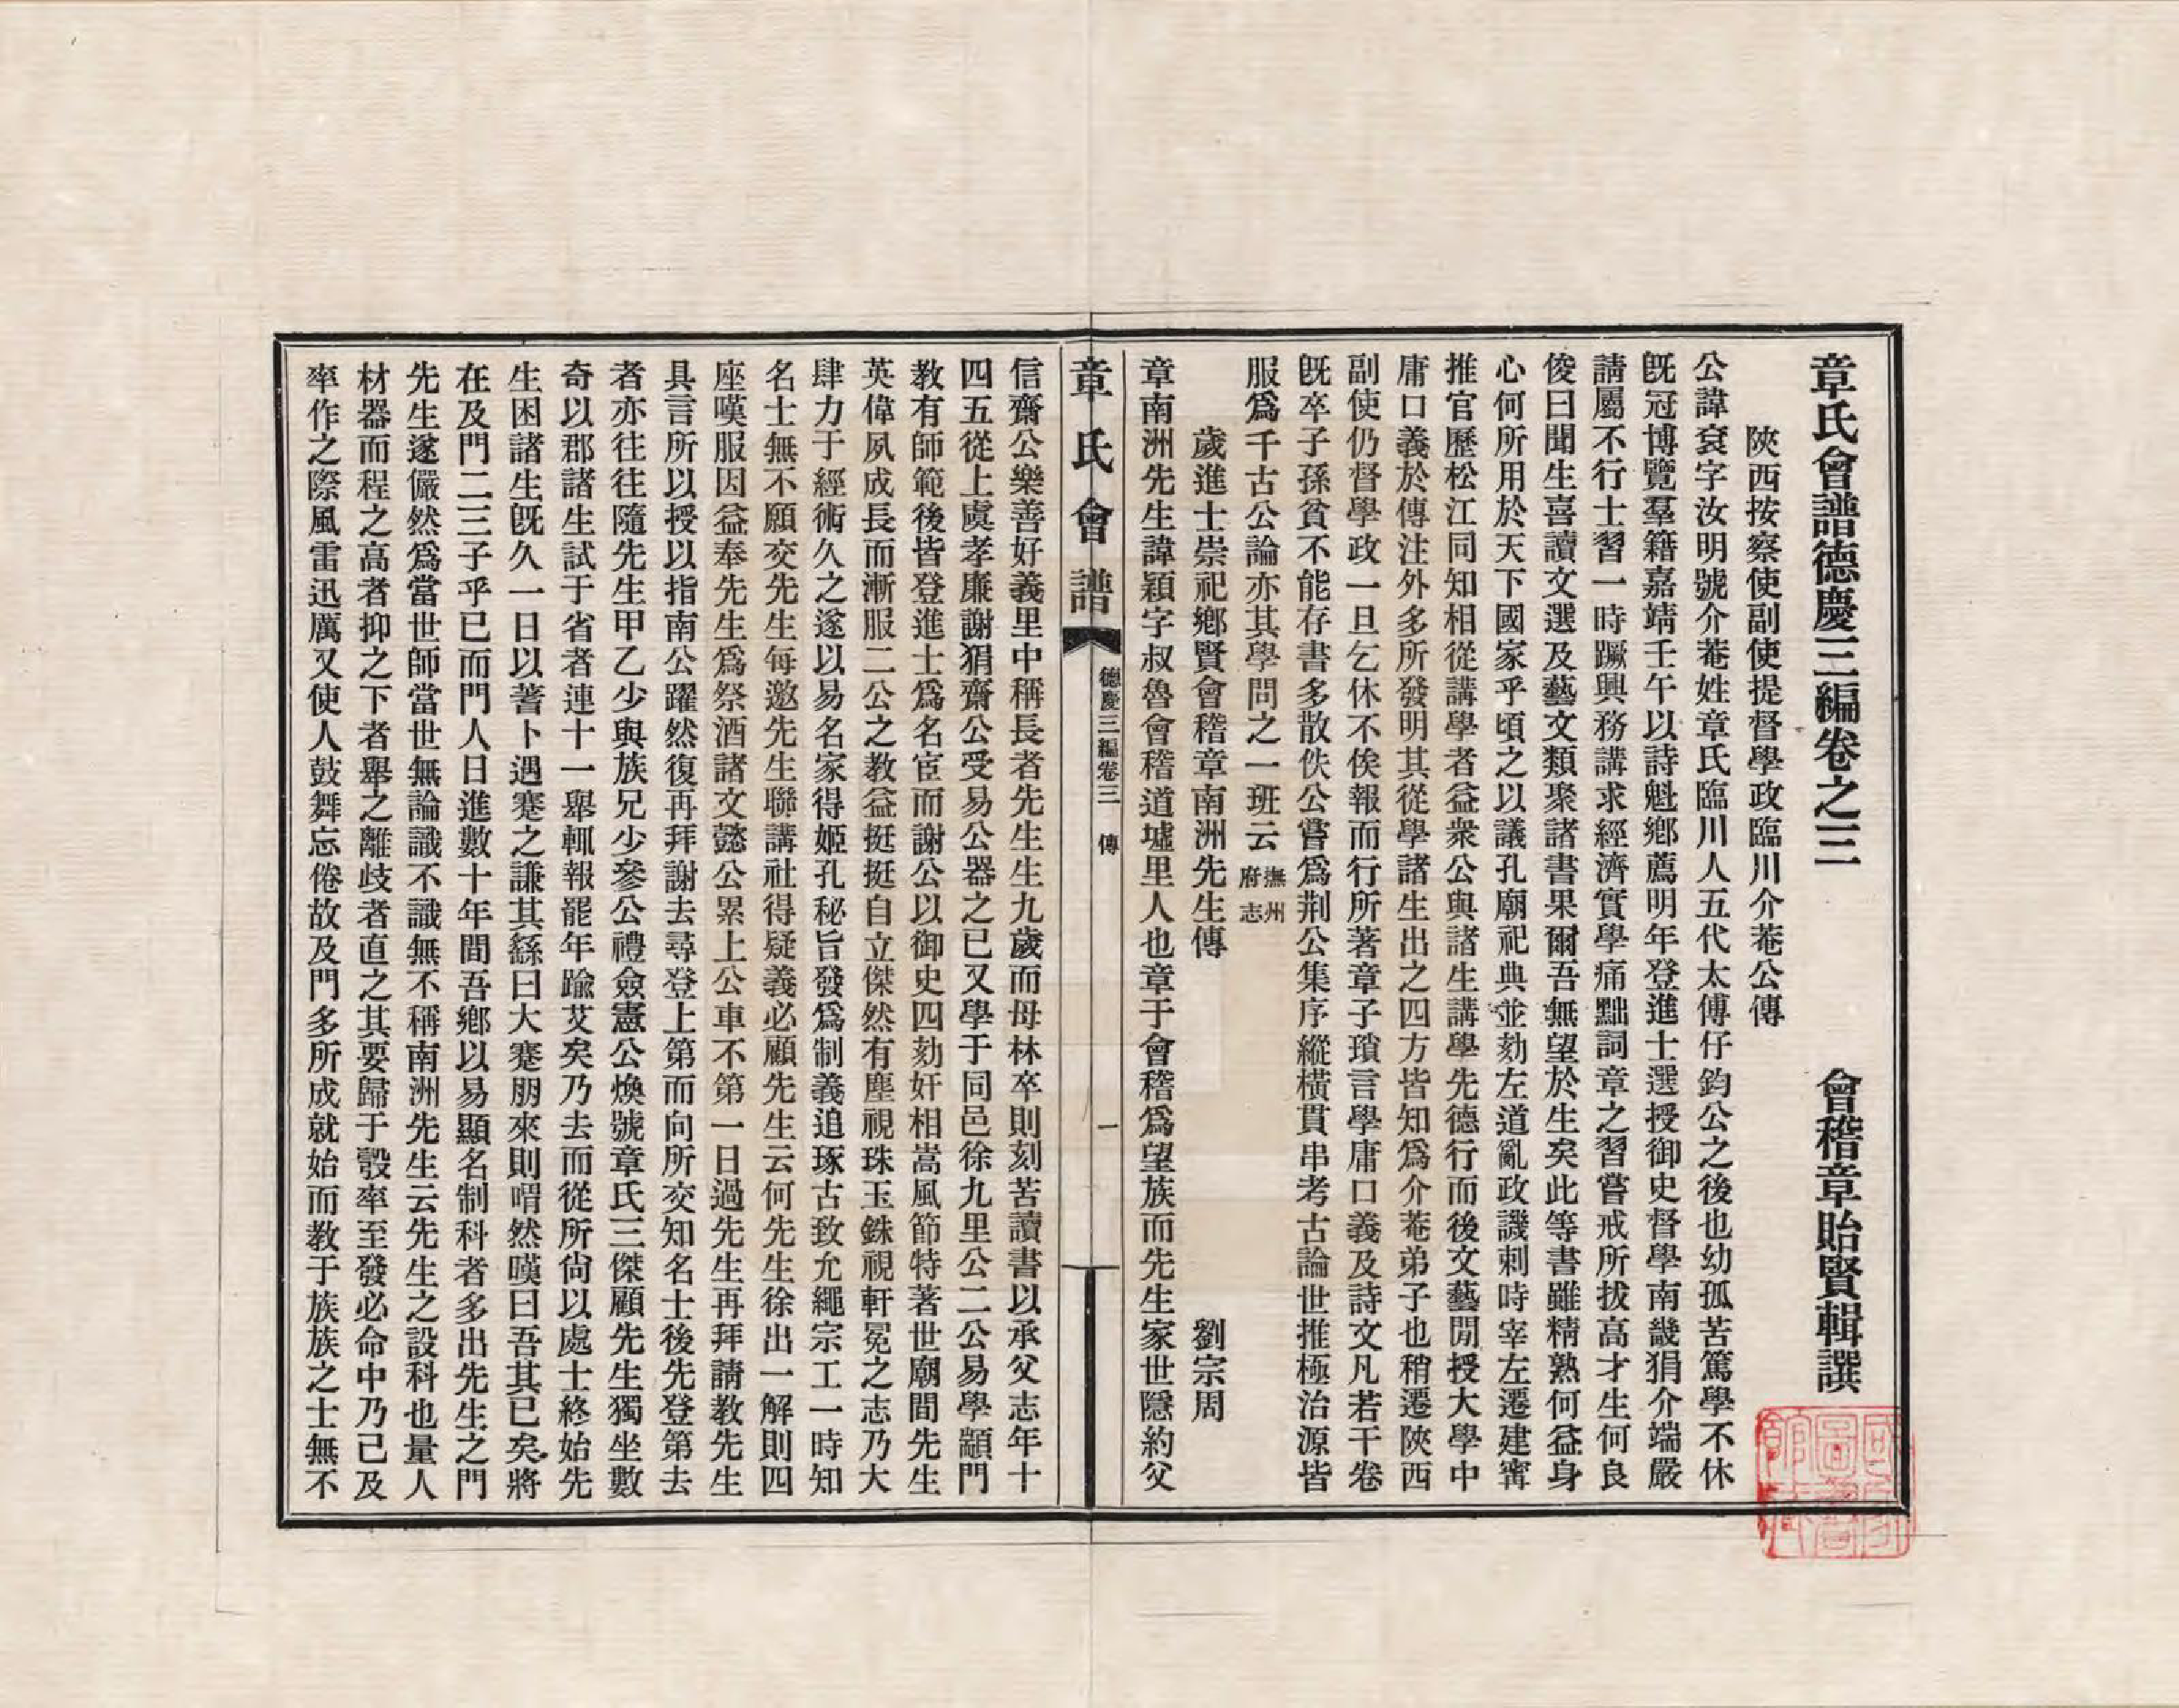 章氏會譜德慶三編卷之三　會稽章貽賢輯譔
陝西按察使副使提督學政臨川介菴公傳
公諱袞字汝明號介菴姓章氏臨川人五代太傅仔鈞公之後也幼孤苦篤學不休
既冠博覽羣籍嘉靖壬午以詩魁鄉薦明年登進士選授御史督學南畿狷介端嚴
請屬不行士習一時蹶興務講求經濟實學痛黜詞章之習嘗戒所拔高才生何良
俊曰聞生喜讀文選及藝文類聚諸書果爾吾無望於生矣此等書雖精熟何益身
心何所用於天下國家乎頃之以議孔廟祀典並劾左道亂政譏刺時宰左遷建寗
推官歷松江同知相從講學者益衆公與諸生講學先德行而後文藝閒授大學中
庸口義於傳注外多所發明其從學諸生出之四方皆知爲介菴弟子也稍遷陝西
副使仍督學政一旦乞休不俟報而行所著章子瑣言學庸口義及詩文凡若干卷
既卒子孫貧不能存書多散佚公嘗爲荆公集序縱橫貫串考古論世推極治源皆
服爲千古公論亦其學問之一班云撫州府志
歲進士崇祀鄉賢會稽章南洲先生傳　劉宗周
章南洲先生諱穎字叔魯會稽道墟里人也章于會稽爲望族而先生家世隱約父
章氏會譜　德慶三編卷三　傳　一
信齋公樂善好義里中稱長者先生生九歲而母林卒則刻苦讀書以承父志年十
四五從上虞孝廉謝狷齋公受易公器之已又學于同邑徐九里公二公易學顓門
教有師範後皆登進士爲名宦而謝公以御史四劾奸相嵩風節特著世廟間先生
英偉夙成長而漸服二公之教益挺挺自立傑然有塵視珠玉銖視軒冕之志乃大
肆力于經術久之遂以易名家得姬孔秘旨發爲制義追琢古致允繩宗工一時知
名士無不願交先生每邀先生聯講社得疑義必顧先生云何先生徐出一解則四
座嘆服因益奉先生爲祭酒諸文懿公累上公車不第一日過先生再拜請教先生
具言所以授以指南公躍然復再拜謝去尋登上第而向所交知名士後先登第去
者亦往往隨先生甲乙少與族兄少參公禮僉憲公煥號章氏三傑顧先生獨坐數
奇以郡諸生試于省者連十一舉輒報罷年踰艾矣乃去而從所尙以處士終始先
生困諸生既久一日以蓍卜遇蹇之謙其繇曰大蹇朋來則喟然嘆曰吾其已矣將
在及門二三子乎已而門人日進數十年間吾鄉以易顯名制科者多出先生之門
先生遂儼然爲當世師當世無論識不識無不稱南洲先生云先生之設科也量人
材器而程之高者抑之下者舉之離歧者直之其要歸于彀率至發必命中乃已及
率作之際風雷迅厲又使人鼓舞忘倦故及門多所成就始而教于族族之士無不